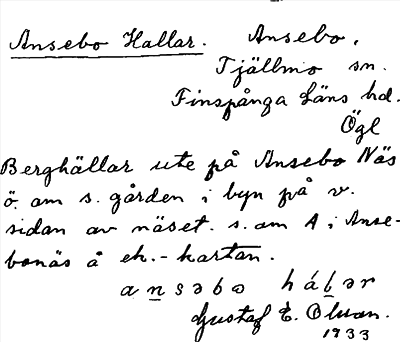 Ansebo Hallar. Ansebo,
Tjällmo sn.
Finspånga Läns hd.
Ögl
Berghällar ute på Ansebo Näs
ö. om s. gården i byn på v.
sidan av näset. s. om A i Anse-
bonäs å ek.-kartan.
ansəbo hálər
Gustaf E. Olsson.
1933